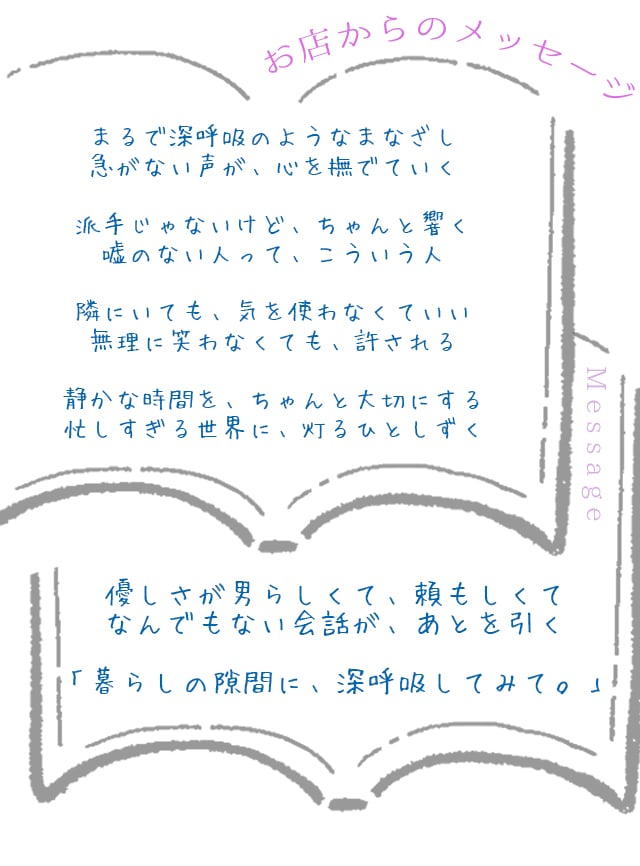 お店からのメッセージ
まるで深呼吸のようなまなざし
急がない声が、心を撫でていく
派手じゃないけど、ちゃんと響く
嘘のない人って、こういう人
隣にいても、気を使わなくていい
無理に笑わなくても、許される
静かな時間を、ちゃんと大切にする
忙しすぎる世界に、灯るひとしずく
Message
優しさが男らしくて、頼もしくて
なんでもない会話が、あとを引く
「暮らしの隙間に、深呼吸してみて。」